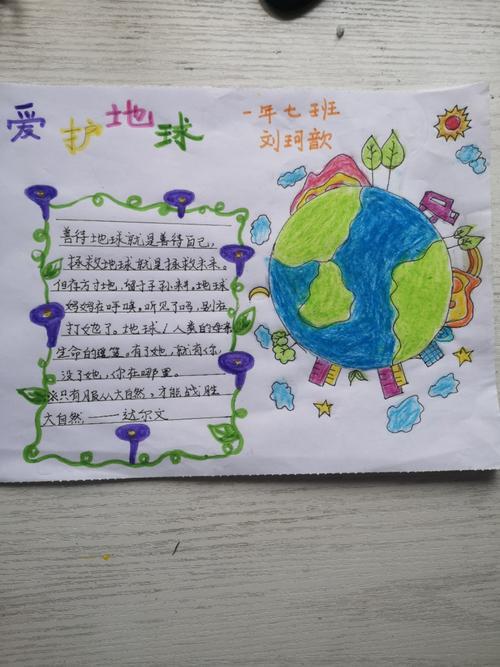 爱护地球
一年七班
刘珂歆
善待地球就是善待自己,
拯救地球就是拯救未来。
但存方寸地,留于子孙耕。地球
妈妈在呼唤。听见了吗,别在
打她了。地球!人类的母亲
生命的摇篮。有了她,就有你,
没了她,你在哪里。
※只有服从大自然,才能战胜
大自然——达尔文